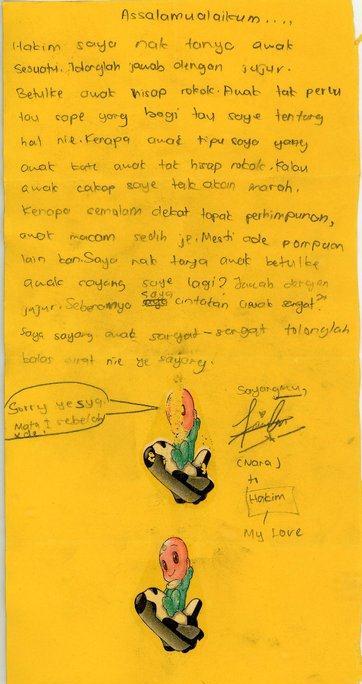 Assalamualaikum....
Hakim saya nak tanya awak
sesuatu. Tolonglah jawab dengan jujur.
Betulke awak hisap rokok. Awak tak perlu
tau sape yang bagi tau saye tentang
hal nie. Kenapa awak tipu saya yang
awak kate awak tak hisap rokok. Kalau
awak cakap saye tak akan marah.
Kenapa semalam dekat tapak perhimpunan,
awak macam sedih je. Mesti ade pompuan
lain kan. Saya nak tanya awak betulke
awak sayang saye lagi? Jawab dengan
jujur. Sebenarnya saya cintakan awak sangat-
Saya sayang awak sangat-sangat tolonglah
balas surat nie ye sayang.
Sorry ye syg.
Mata I sebelah
x de!
Sayangmu,
(Nara)
to
Hakim
My Love